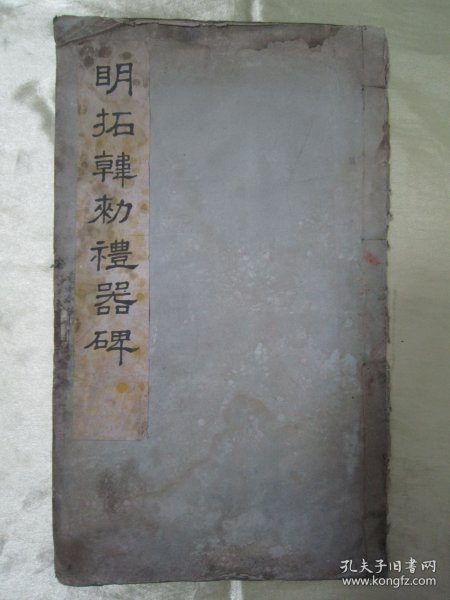 明拓韓勑禮器碑
孔夫子旧书网
www.kongfz.com